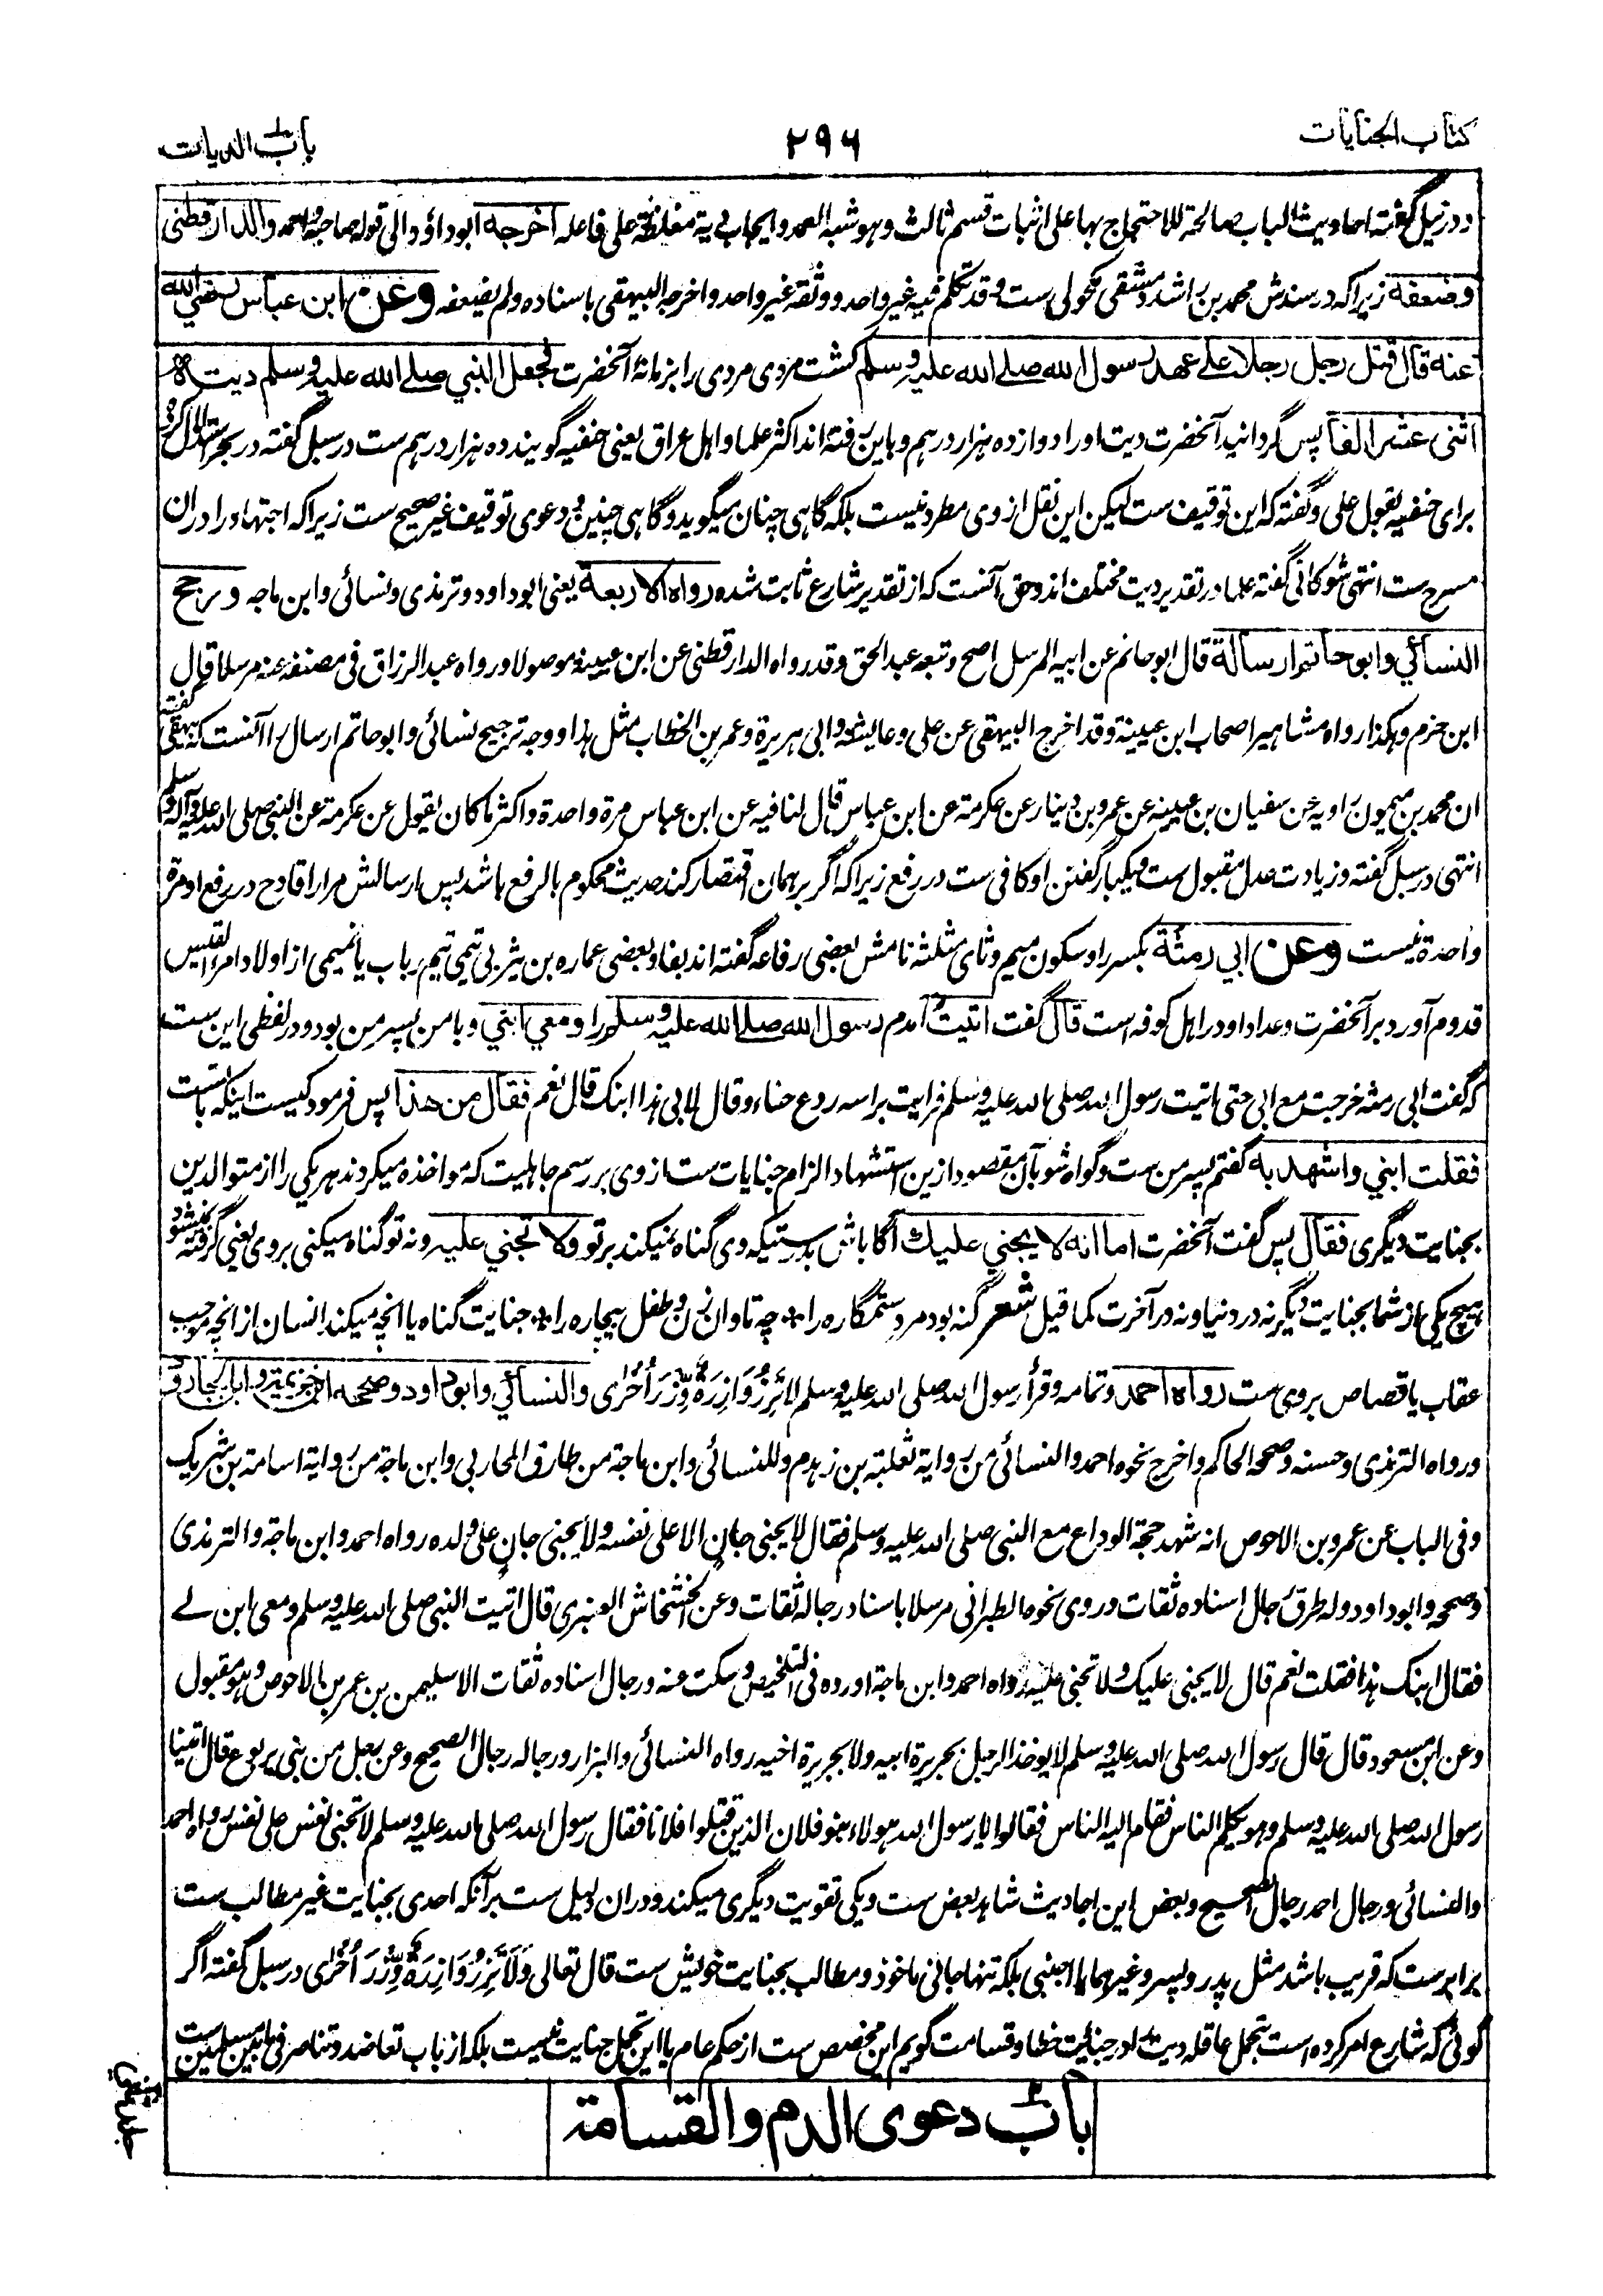 کتاب الجنایات
۲۹۶
باب الدیات
و در نیل گفته احادیث الباب صالحة للاحتجاج بها علی اثبات قسم ثالث و هو شبه العمد و ایجاب دیة مغلظة علی فاعله اخرجه ابوداؤد الی قوله صاحبه و احمد والدارقطنی
وضعفه زیراکه در سندش محمد بن راشد دمشقی مکحولی ست و قد تکلم فیه غیر واحد و وثقه غیر واحد و اخرجه البیهقی باسناده و لم یضعفه وعن ابن عباس رضي الله
عنه قال قتل رجل رجلا علی عهد رسول الله صلے الله علیه وسلم کشت مردی مردی را بزمانهٔ آنحضرت فجعل النبي صلے الله علیه وسلم دیته
اثنی عشر الفا پس گردانید آنحضرت دیت او را دوازده هزار درهم و باین رفته اند اکثر علما و اهل عراق یعنی حنفیه گویند ده هزار درهم ست در سبل گفته در بحر استدلال کرده
برای حنفیه بقول علی و گفته که این توقیف ست لیکن این نقل از وی مطرد نیست بلکه گاهی چنان میگوید و گاهی چنین و دعوی توقیف غیر صحیح ست زیراکه اجتهاد را در ان
مسرح ست انتهی شوکانی گفته علما در تقدیر دیت مختلف اند و حق آنست که از تقدیر شارع ثابت شده رواه الاربعة یعنی ابوداود و ترمذی و نسائی و ابن ماجه و رجح
النسائي وابو حاتم ارساله قال ابو حاتم عن ابیه المرسل اصح و تبعه عبد الحق و قد رواه الدارقطنی عن ابن عیینة موصولا و رواه عبد الرزاق فی مصنفه عنه مرسلا قال
ابن حزم و هکذا رواه مشاهیر اصحاب ابن عیینة و قد اخرج البیهقی عن علی و عایشه و ابی هریرة و عمر بن الخطاب مثل هذا و وجه ترجیح نسائی و ابو حاتم ارسال را آنست که بیهقی گفته
ان محمد بن میمون راویه عن سفیان بن عیینه عن عمرو بن دینار عن عکرمة عن ابن عباس قال لنا فیه عن ابن عباس مرة واحدة و اکثر ما کان یقول عن عکرمة عن النبی صلی الله علیه وآله وسلم
انتهی در سبل گفته و زیادت عدل مقبول ست و یکبار گفتن او کافی ست در رفع زیراکه اگر بر همان اقتصار کند حدیث محکوم بالرفع باشد پس ارسالش مرارا قادح در رفع او مرة
واحدة نیست وعن ابي رمثة بکسر را و سکون میم و ثای مثلثه نامش بعضی رفاعه گفته اند بفا و بعضی عماره بن یثربی تیمی تیم رباب یا تمیمی از اولاد امرء القیس
قدوم آورد بر آنحضرت و عداد او در اهل کوفه است قال گفت اتیت آمدم رسول الله صلے الله علیه وسلم را ومعي ابني و با من پسر من بود و در لفظی این ست
که گفت ابی رمثه خرجت مع ابی حتی اتیت رسول الله صلی الله علیه وسلم فرایت براسه ردع حناء و قال لابی هذا ابنک قال نعم فقال من هذا پس فرمود کیست اینکه با تست
فقلت ابني واشهد به گفتم پسر من ست و گواه شو بآن مقصود ازین استشهاد الزام جنایات ست از وی بر رسم جاهلیت که مواخذه میکردند هر یکی را از متوالدین
بجنایت دیگری فقال پس گفت آنحضرت اما انه لا یجني علیك آگاه باش بدرستیکه وی گناه نمیکند بر تو ولا تجني علیه و نه تو گناه میکنی بر وی یعنی گرفته نمیشود
هیچ یکی از شما بجنایت دیگر نه در دنیا و نه در آخرت کما قیل شعر گنه بود مرد ستمگاره را ٭ چه تاوان زن و طفل بیچاره را ٭ جنایت گناه یا آنچه میکند انسان از انچه موجب
عقاب یا قصاص بر وی ست رواه احمد و تمامه و قرأ رسول الله صلی الله علیه وسلم لا تَزِرُ وَازِرَةٌ وِّزْرَ أُخْرٰی والنسائي وابوداود وصححه ابن خزیمة وابن الجارود
و رواه الترمذی و حسنه و صححه الحاکم و اخرج نحوه احمد و النسائی من روایة ثعلبة بن زهدم و للنسائی و ابن ماجة من طارق المحاربی و ابن ماجة من روایة اسامة بن شریک
و فی الباب عن عمرو بن الاحوص انه شهد حجة الوداع مع النبی صلی الله علیه وسلم فقال لا یجنی جانٍ الا علی نفسه و لا یجنی جانٍ علی ولده رواه احمد و ابن ماجة و الترمذی
و صححه و ابوداود و له طرق رجال اسناده ثقات و روی نحوه الطبرانی مرسلا باسناد رجاله ثقات و عن الخشخاش العنبری قال اتیت النبی صلی الله علیه وسلم و معی ابن لے
فقال ابنک هذا فقلت نعم قال لا یجنی علیک و لا تجنی علیه رواه احمد و ابن ماجة اورده فی التلخیص و سکت عنه و رجال اسناده ثقات الا سلیمن بن عمرو بن الاحوص و هو مقبول
و عن ابن مسعود قال قال رسول الله صلی الله علیه وسلم لا یوخذ الرجل بجریرة ابیه و لا بجریرة اخیه رواه النسائی و البزار و رجاله رجال الصحیح و عن رجل من بنی یربوع قال اتینا
رسول الله صلی الله علیه وسلم و هو یکلم الناس فقام الیه الناس فقالوا یا رسول الله هولاء بنو فلان الذین قتلوا فلانا فقال رسول الله صلی الله علیه وسلم لا تجنی نفس علی نفس رواه احمد
و النسائی و رجال احمد رجال الصحیح و بعض این احادیث شاهد بعض ست و یکی تقویت دیگری میکند و دران دلیل ست بر آنکه احدی بجنایت غیر مطالب ست
برابرست که قریب باشد مثل پدر و پسر و غیرهما یا اجنبی بلکه تنها جانی ماخوذ و مطالب بجنایت خویش ست قال تعالی وَلَا تَزِرُ وَازِرَةٌ وِّزْرَ أُخْرٰی در سبل گفته اگر
گوئی که شارع امر کرده است بتحمل عاقله دیت را در جنایت خطا و قسامت گویم این مخصص ست از حکم عام یا این تحمل جنایت نیست بلکه از باب تعاضد و تناصر فی مابین مسلمین ست
باب دعوی الدم والقسامة